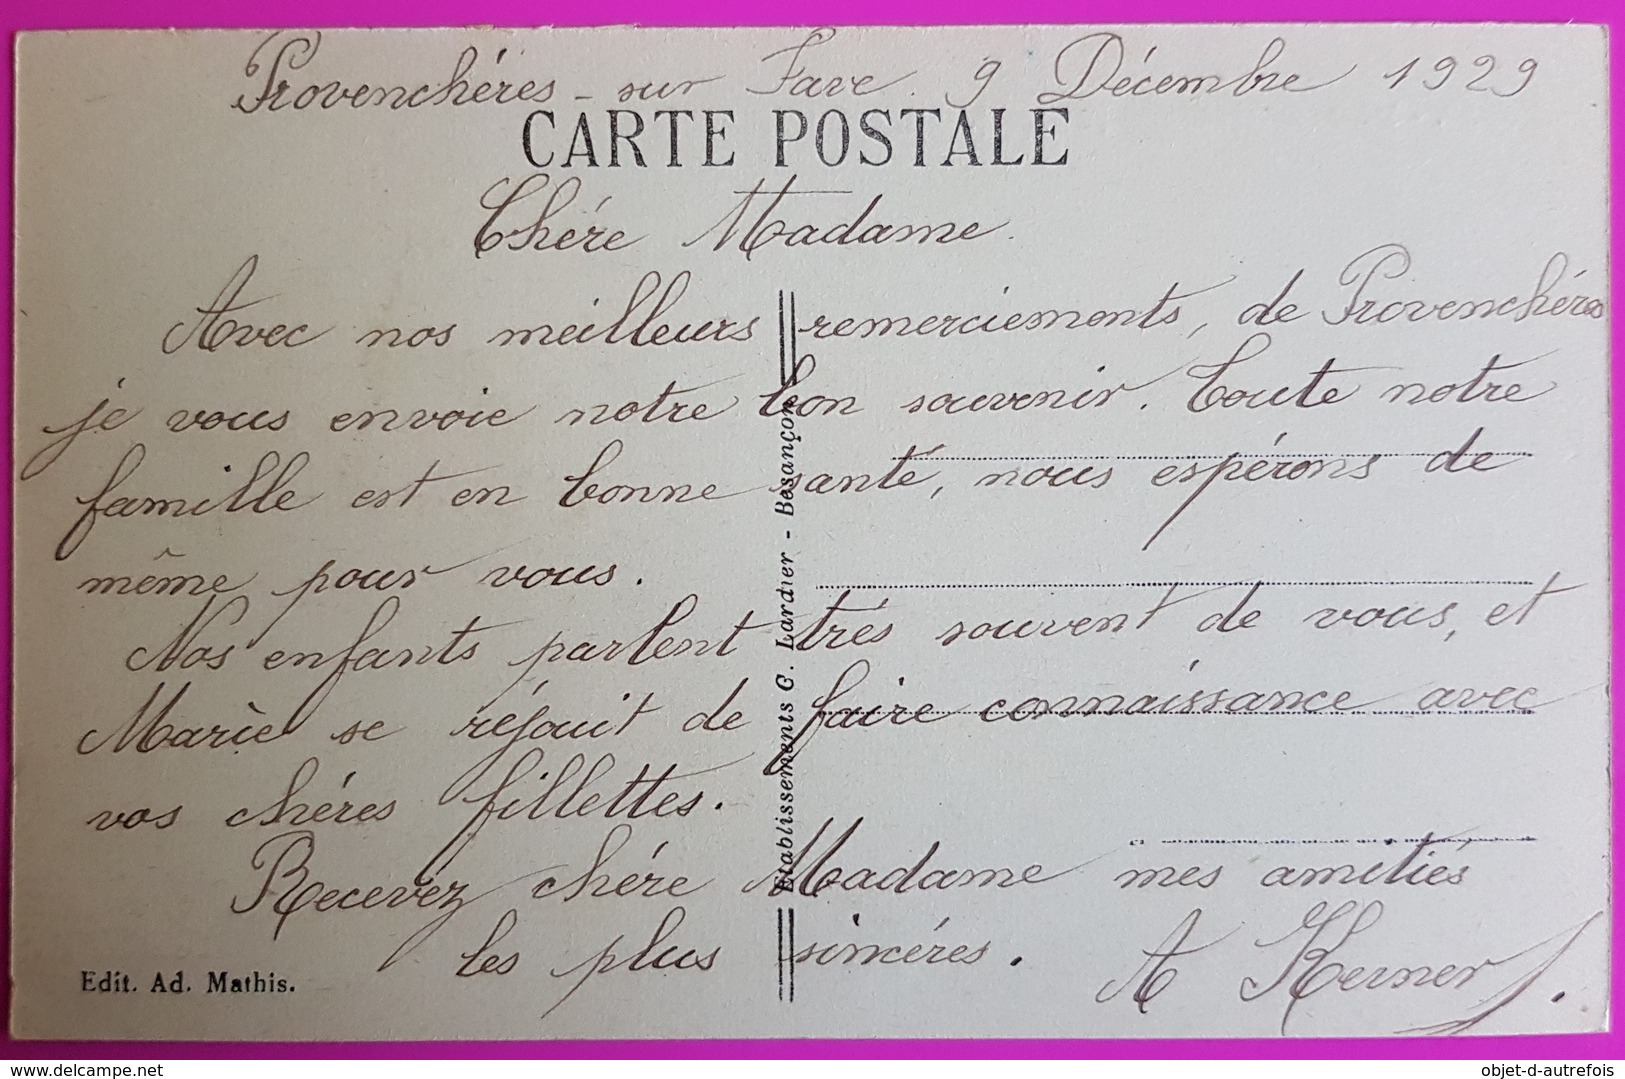 Provenchéres - sur Fave. 9 Décembre 1929
CARTE POSTALE
Chére Madame.
Avec nos meilleurs remerciements, de Provenchéres
je vous envoie notre bon souvenir. Toute notre
famille est en bonne santé, nous espérons de
même pour vous.
Nos enfants parlent trés souvent de vous, et
Marie se réjouit de faire connaissance avec
vos chéres fillettes.
Recevez chére Madame mes amitiés
les plus sincéres.
A Kerner
Etablissements C. Lardier - Besançon
Edit. Ad. Mathis.
www.delcampe.net
objet-d-autrefois